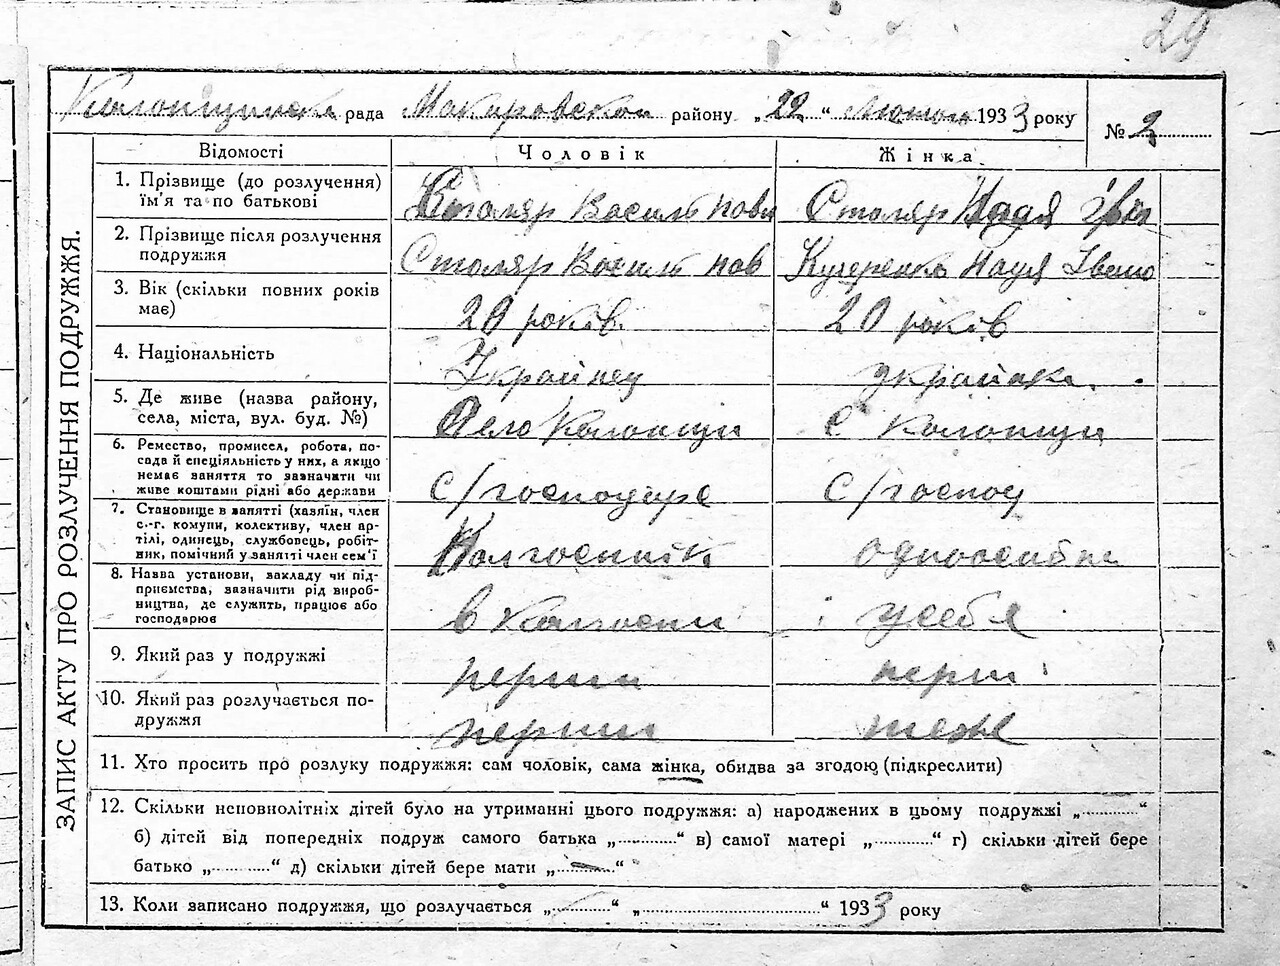 29
Колонщинска рада Макаровскои району „22“ Лютого 1933 року № 2
ЗАПИС АКТУ ПРО РОЗЛУЧЕННЯ ПОДРУЖЖЯ.
Відомості Чоловік Жінка
1. Прізвище (до розлучення) їм'я та по батькові Столяр Василь Столяр Надя
2. Прізвище після розлучення подружжя Столяр Василь Кучеренко Надя Івано
3. Вік (скільки повних років має) 20 років. 20 років
4. Національність Українец українка.
5. Де живе (назва району, села, міста, вул. буд. №) Село Колонщи С Колонщи
6. Ремество, промисел, робота, по-
сада й спеціяльність у них, а якщо
немає заняття то зазначити чи
живе коштами рідні або держави с/господарс с/господ
7. Становище в занятті (хазяїн, член
с.-г. комуни, колективу, член ар-
тілі, одинець, службовець, робіт-
ник, помічний у занятті член сем'ї Колгоспнік одноосібне
8. Назва установи, закладу чи під-
приємства, зазначити рід вироб-
ництва, де служить, працює або
господарює в колгоспи у себя
9. Який раз у подружжі перши перши
10. Який раз розлучається по-
дружжя перши теже
11. Хто просить про розлуку подружжя: сам чоловік, сама жінка, обидва за згодою (підкреслити)
12. Скільки неповнолітніх дітей було на утриманні цього подружжя: а) народжених в цьому подружжі „..........“
б) дітей від попередніх подруж самого батька „..........“ в) самої матері „..........“ г) скільки дітей бере
батько „..........“ д) скільки дітей бере мати „..........“
13. Коли записано подружжя, що розлучається „..........“ „..............................“ 1933 року